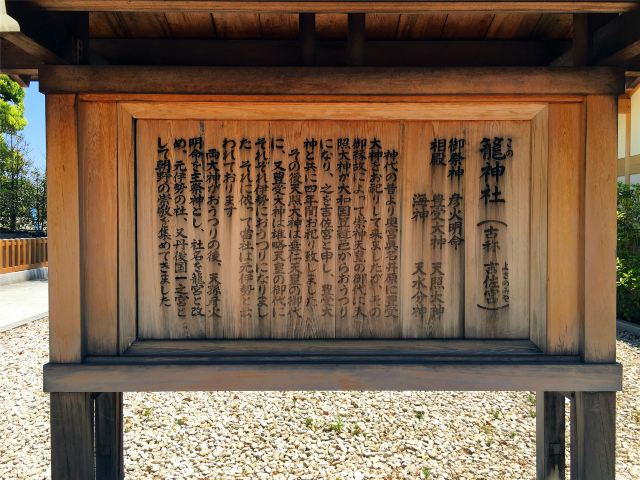 籠神社（古称 吉佐宮）
この よさのみや
御祭神 彦火明命
相殿 豊受大神 天照大神
海神 天水分神
神代の昔より奥宮真名井原に豊受
大神をお祀りして来ましたが、その
御縁故によって崇神天皇の御代に天
照大神が大和国笠縫邑からおうつり
になり、之を吉佐宮と申し、豊受大
神と共に四年間お祀り致しました。
その後天照大神は垂仁天皇の御代
に、又豊受大神は雄略天皇の御代に
それぞれ伊勢におうつりになりまし
た。それに依って当社は元伊勢と云
われております
両大神がおうつりの後、天孫彦火
明命を主祭神とし、社名を籠宮と改
め、元伊勢の社、又丹後国一之宮と
して朝野の崇敬を集めてきました